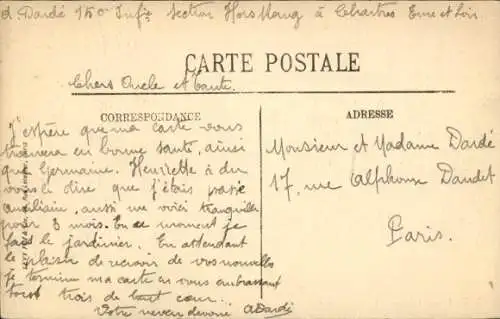 A. Dardé 150e Infie Section Hors Rang à Chartres Eure et Loir
CARTE POSTALE
Chers Oncle et Tante.
CORRESPONDANCE
J'espère que ma carte vous
trouvera en bonne santé, ainsi
que Germaine. Henriette a du
vous le dire que j'étais passé
auxiliaire, aussi me voici tranquille
pour 3 mois. En ce moment je
fais le jardinier. En attendant
le plaisir de recevoir de vos nouvelles
je termine ma carte en vous embrassant
tous trois de tout cœur.
Votre neveu dévoué ADardé
ADRESSE
Monsieur et Madame Dardé
17, rue Alphonse Daudet
Paris.